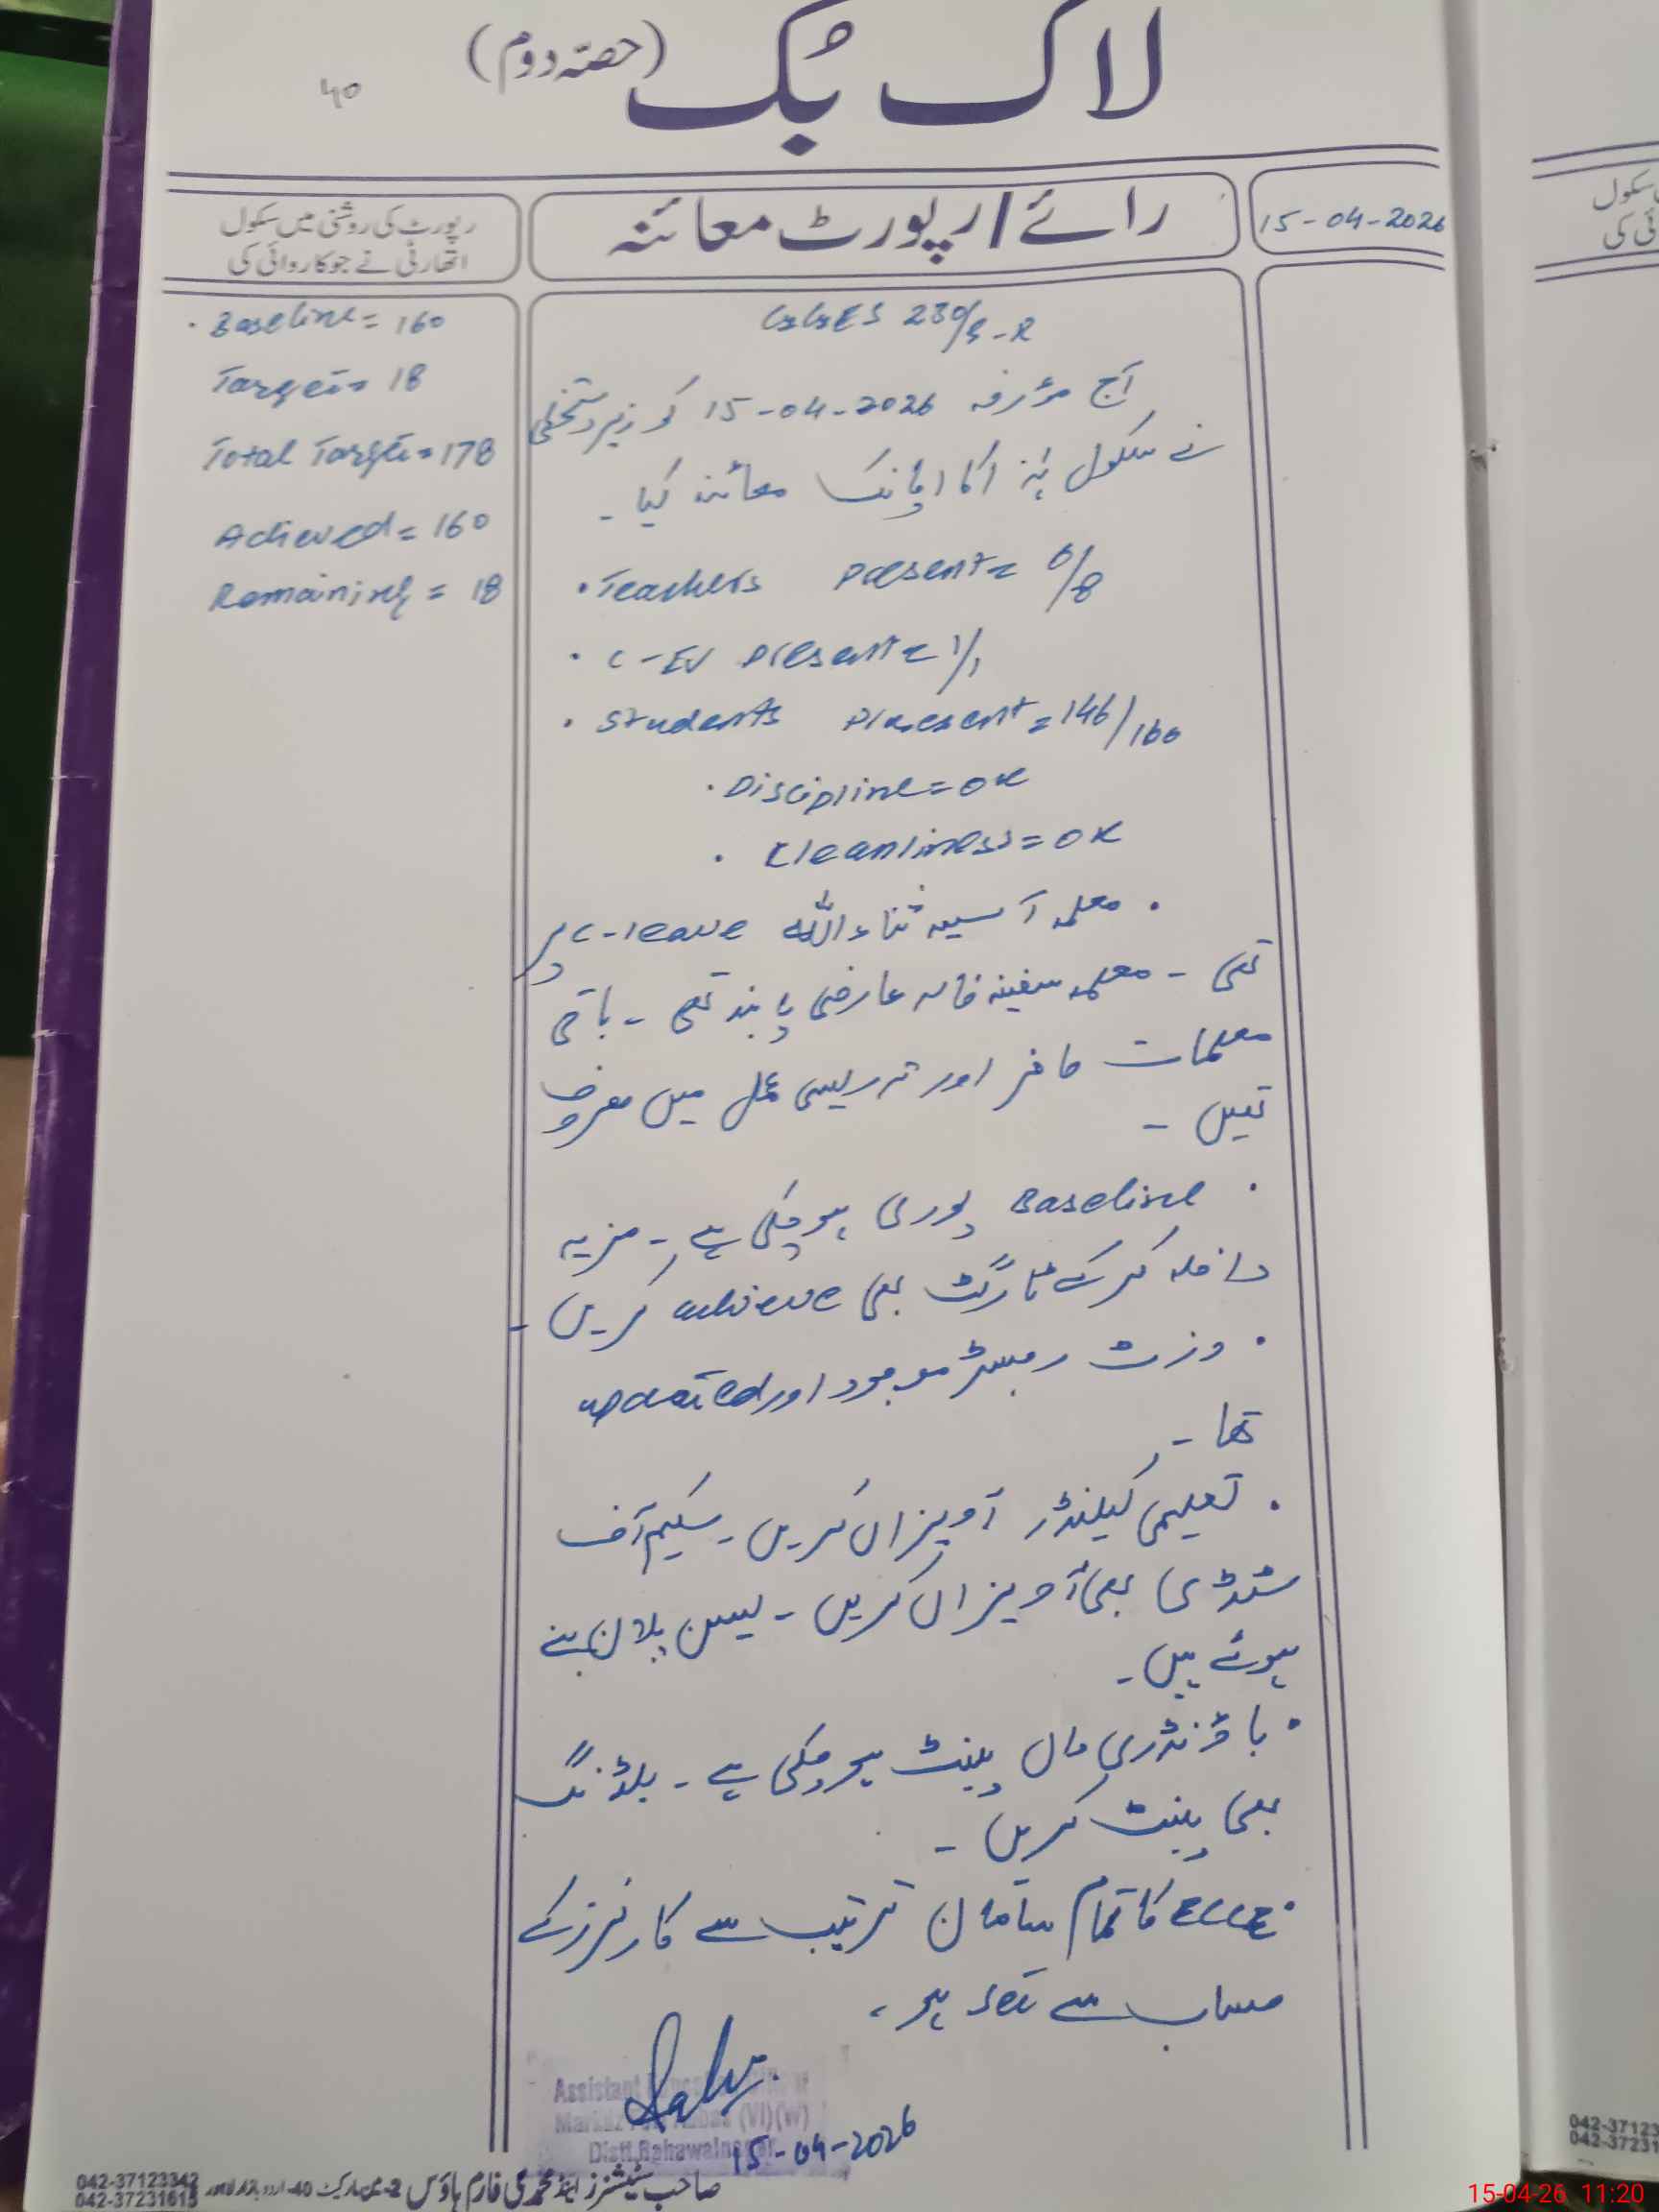 لاگ بُک (حصّہ دوم)
40
15-04-2026
رائے / رپورٹ معائنہ
رپورٹ کی روشنی میں سکول
اتھارٹی نے جو کاروائی کی
GGES 230/9-R
آج مؤرخہ 15-04-2026 کو زیر دستخطی
نے سکول ہٰذا کا اچانک معائنہ کیا ۔
• Teachers Present = 6/8
• C-IV Present = 1/1
• Students Present = 146/160
• Discipline = OK
• Cleanliness = OK
• معلمہ آسیہ ثناءاللہ C-leave پر
تھی ۔ معلمہ سفینہ عارضی پابند تھی ۔ باقی
معلمات حاضر اور تدریسی عمل میں مصروف
تھیں ۔
• Baseline پوری ہو چکی ہے ۔ مزید
داخلہ کر کے ٹارگٹ بھی achieve کریں ۔
• وزٹ رجسٹر موجود اور updated
تھا ۔
• تعلیمی کیلنڈر آویزاں کریں ۔ سکیم آف
سٹڈی بھی آویزاں کریں ۔ لیسن پلان بنے
ہوئے ہیں ۔
• باؤنڈری وال پینٹ ہو چکی ہے ۔ بلڈنگ
بھی پینٹ کریں ۔
• ECCE کا تمام سامان ترتیب سے کارنرز کے
حساب سے set ہو ۔
• Baseline = 160
Target = 18
Total Target = 178
Achieved = 160
Remaining = 18
Assistant
Markaz (VI)(W)
Distt. Bahawalnagar
15-04-2026
042-37123342
042-37231615
صاحب سٹیشنرز اینڈ محمدی فارم ہاؤس 2-مین مارکیٹ 40-اردو بازار لاہور
سکول
ئی کی
042-37123
042-37231
15-04-26 11:20